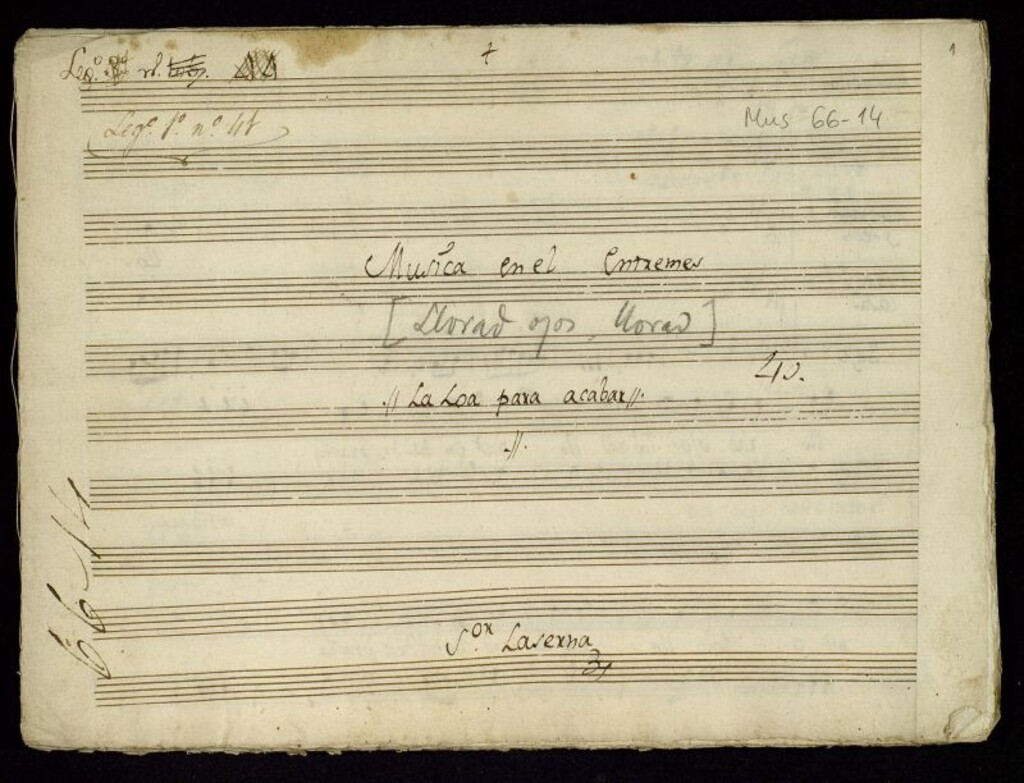 1
Leg.º
Mus 66-14
Leg.º 1.º n.º 41
Musica en el Entremes
[Llorad ojos, llorad]
40.
// La Loa para acabar //.
.//.
66-14
S.or Laserna